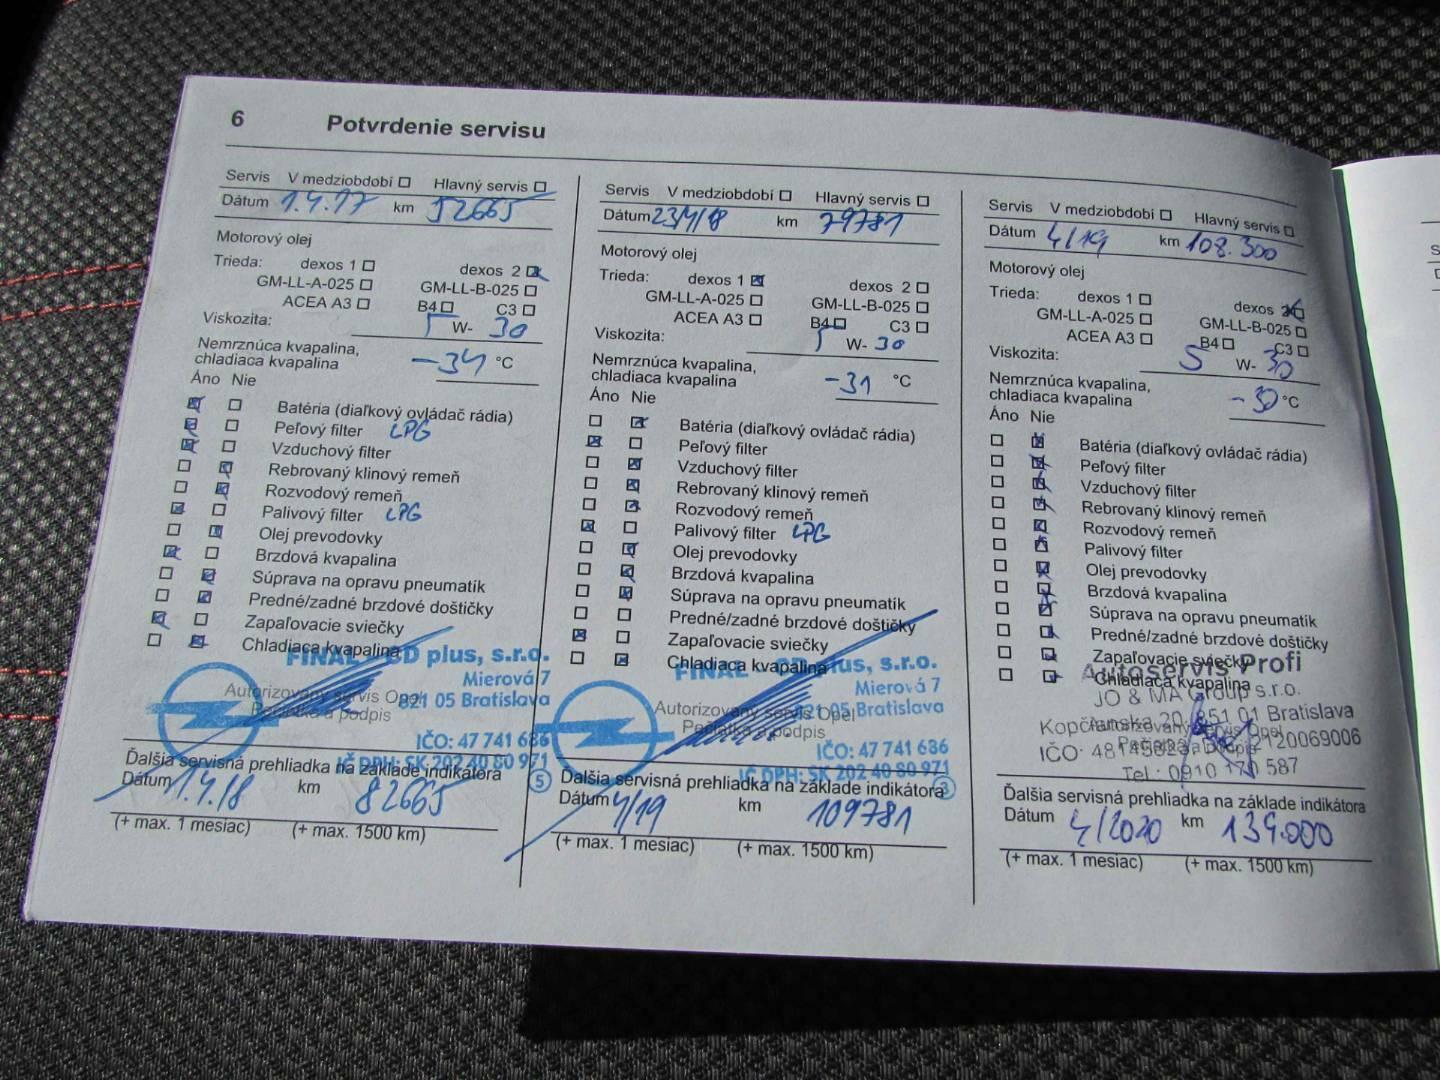 6 Potvrdenie servisu
Servis V medziobdobí Hlavný servis
Dátum 1.4.17 km 52665
Motorový olej
Trieda: dexos 1 dexos 2
GM-LL-A-025 GM-LL-B-025
ACEA A3 B4 C3
Viskozita: 5 W- 30
Nemrznúca kvapalina,
chladiaca kvapalina -34 °C
Áno Nie
Batéria (diaľkový ovládač rádia)
Peľový filter LPG
Vzduchový filter
Rebrovaný klinový remeň
Rozvodový remeň
Palivový filter LPG
Olej prevodovky
Brzdová kvapalina
Súprava na opravu pneumatík
Predné/zadné brzdové doštičky
Zapaľovacie sviečky
Chladiaca kvapalina
FINAL - CD plus, s.r.o.
Mierová 7
821 05 Bratislava
Autorizovaný servis Opel
Pečiatka a podpis
IČO: 47 741 686
IČ DPH: SK 202 40 80 971
5
Ďalšia servisná prehliadka na základe indikátora
Dátum 1.4.18 km 82665
(+ max. 1 mesiac) (+ max. 1500 km)
Servis V medziobdobí Hlavný servis
Dátum 23/4/18 km 79781
Motorový olej
Trieda: dexos 1 dexos 2
GM-LL-A-025 GM-LL-B-025
ACEA A3 B4 C3
Viskozita: 5 W- 30
Nemrznúca kvapalina,
chladiaca kvapalina -31 °C
Áno Nie
Batéria (diaľkový ovládač rádia)
Peľový filter
Vzduchový filter
Rebrovaný klinový remeň
Rozvodový remeň
Palivový filter LPG
Olej prevodovky
Brzdová kvapalina
Súprava na opravu pneumatík
Predné/zadné brzdové doštičky
Zapaľovacie sviečky
Chladiaca kvapalina
FINAL - CD plus, s.r.o.
Mierová 7
821 05 Bratislava
Autorizovaný servis Opel
Pečiatka a podpis
IČO: 47 741 686
IČ DPH: SK 202 40 80 971
3
Ďalšia servisná prehliadka na základe indikátora
Dátum 4/19 km 109781
(+ max. 1 mesiac) (+ max. 1500 km)
Servis V medziobdobí Hlavný servis
Dátum 4/19 km 108.300
Motorový olej
Trieda: dexos 1 dexos 2
GM-LL-A-025 GM-LL-B-025
ACEA A3 B4 C3
Viskozita: 5 W- 30
Nemrznúca kvapalina,
chladiaca kvapalina -30 °C
Áno Nie
Batéria (diaľkový ovládač rádia)
Peľový filter
Vzduchový filter
Rebrovaný klinový remeň
Rozvodový remeň
Palivový filter
Olej prevodovky
Brzdová kvapalina
Súprava na opravu pneumatík
Predné/zadné brzdové doštičky
Zapaľovacie sviečky
Chladiaca kvapalina
Autoservis Profi
JO & MA Group s.r.o.
Kopčianska 20, 851 01 Bratislava
Autorizovaný servis Opel
Pečiatka a podpis
IČO: 2120069006
Tel.: 0910 170 587
Ďalšia servisná prehliadka na základe indikátora
Dátum 4/2020 km 139.000
(+ max. 1 mesiac) (+ max. 1500 km)